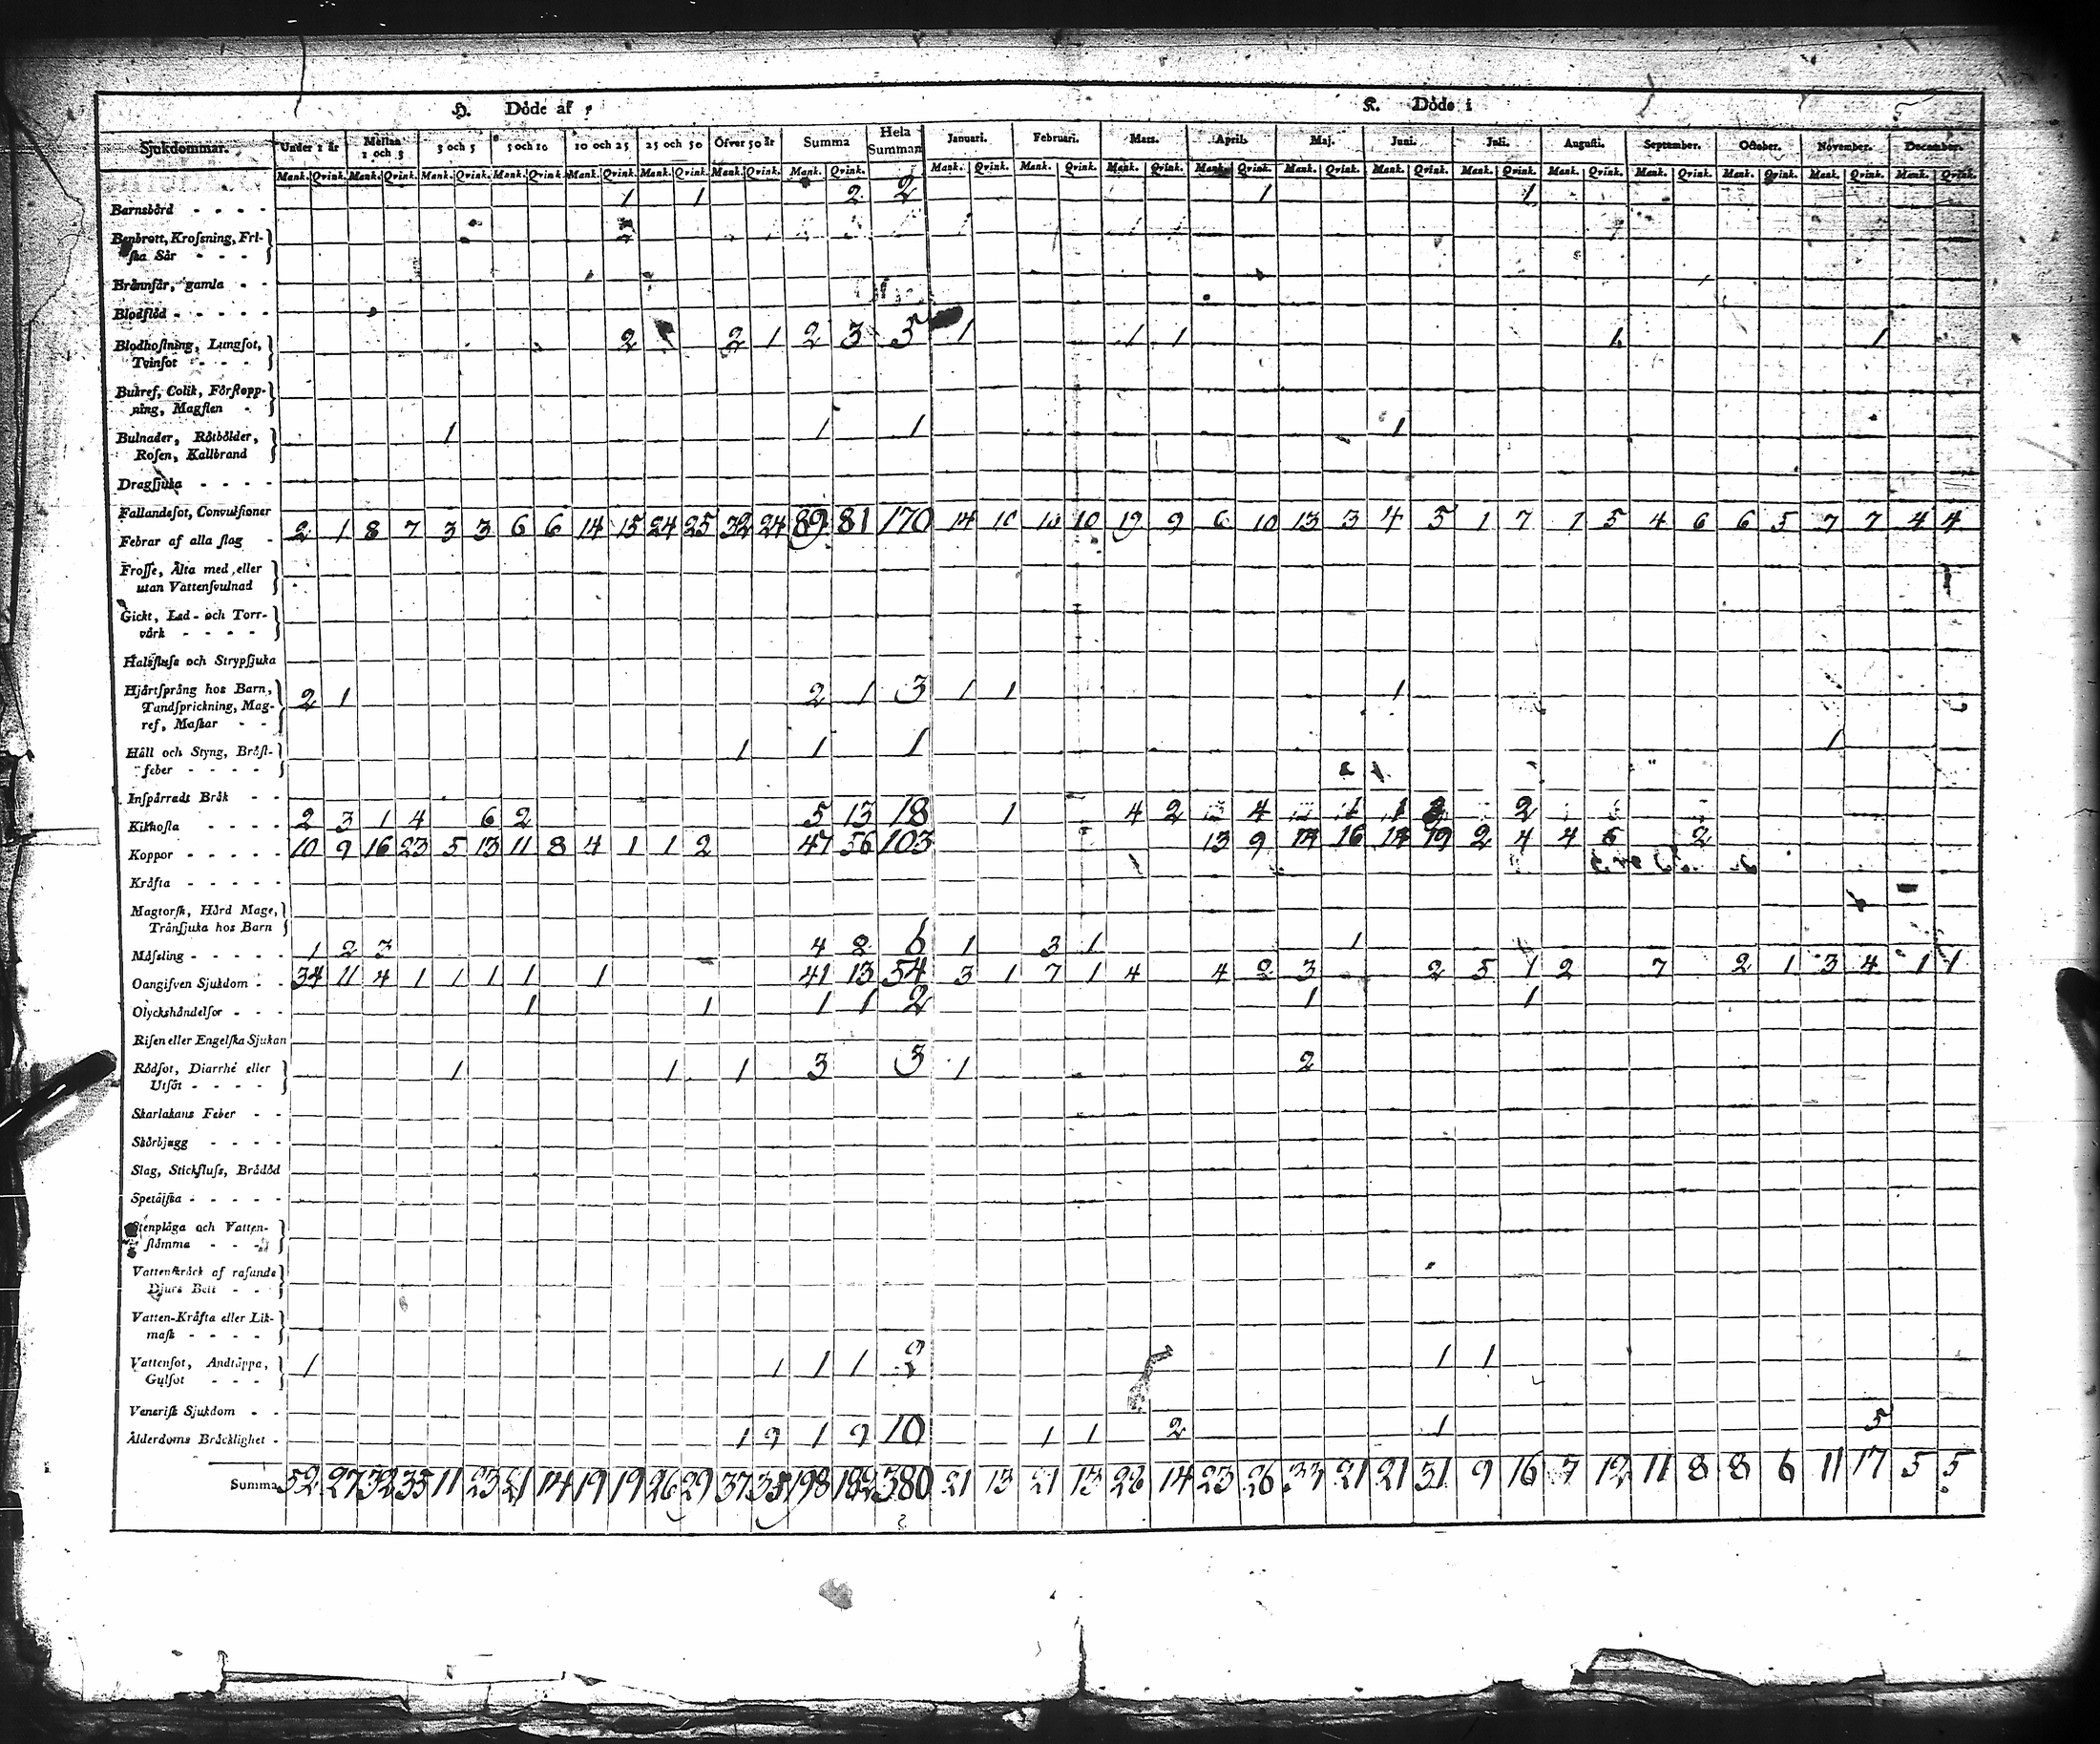 H. Döde af ?
K. Döde i
Sjukdommar. Under 1 år Mellan 1 och 3 3 och 5 5 och 10 10 och 25 25 och 50 Öfver 50 år Summa Hela Summan Januari. Februari. Mars. April. Maj. Juni. Juli. Augusti. September. October. November. December.
Mank. Qvink. Mank. Qvink. Mank. Qvink. Mank. Qvink. Mank. Qvink. Mank. Qvink. Mank. Qvink. Mank. Qvink. Mank. Qvink. Mank. Qvink. Mank. Qvink. Mank. Qvink. Mank. Qvink. Mank. Qvink. Mank. Qvink. Mank. Qvink. Mank. Qvink. Mank. Qvink. Mank. Qvink. Mank. Qvink.
Barnsbörd - - - - 1 1 2 2 1 1
Benbrott, Krofsning, Fri-
ſka Sår - - - -
Brännſår, gamla - -
Blodflöd - - - - -
Blodhoſtning, Lungſot, 2 2 1 2 3 5 1 1 1 1 1
Tvinſot - - -
Bukref, Colik, Förſtopp-
ning, Magſlen -
Bulnader, Rötbölder, 1 1 1 1
Roſen, Kallbrand
Dragſjuka - - - -
Fallandeſot, Convulſioner
Febrar af alla ſlag - 2 1 8 7 3 3 6 6 14 15 24 25 32 24 89 81 170 14 10 10 10 19 9 6 10 13 3 4 5 1 7 1 5 4 6 6 5 7 7 4 4
Froſſe, Älta med eller
utan Vattenſvulnad
Gickt, Led- och Torr-
värk - - - -
Halsfluſs och Strypſjuka
Hjärtſprång hos Barn, 2 1 2 1 3 1 1 1
Tandſprickning, Mag-
ref, Maſkar - -
Håll och Styng, Bröſt- 1 1 1 1
feber - - - -
Inſpärradt Bråk - -
Kikhoſta - - 2 3 1 4 6 2 5 13 18 1 4 2 4 1 1 2
Koppor - - - - - 10 9 16 23 5 13 11 8 4 1 1 2 47 56 103 13 9 14 16 14 19 2 4 4 5 2
Kräfta - - - - -
Magtorſk, Hård Mage,
Tränſjuka hos Barn
Måſsling - - - - - 1 2 3 4 2 6 1 3 1 1
Oangifven Sjukdom - - 34 11 4 1 1 1 1 1 41 13 54 3 1 7 1 4 4 2 3 2 5 1 2 7 2 1 3 4 1 1
Olyckshändelſor - - - 1 1 1 1 2 1 1
Riſen eller Engelſka Sjukan
Rödſot, Diarrhé eller 1 1 1 3 3 1 2
Utſöt - - - -
Skarlakans Feber - -
Skörbjugg - - - -
Slag, Stickfluſs, Brådöd
Spetälſka - - - - -
Stenplåga och Vatten-
ſtämma - - -
Vattenſkräck af raſande
Djurs Bett - - -
Vatten-Kräfta eller Lik-
maſk - - - -
Vattenſot, Andtäppa, 1 1 1 1 1 1
Gulſot - - -
Veneriſk Sjukdom - -
Ålderdoms Bräcklighet - 1 9 1 9 10 1 1 2 1 5
Summa 52 27 32 35 11 23 21 14 19 19 26 29 37 35 198 182 380 21 13 21 13 28 14 23 26 33 21 21 31 9 16 7 12 11 8 8 6 11 17 5 5